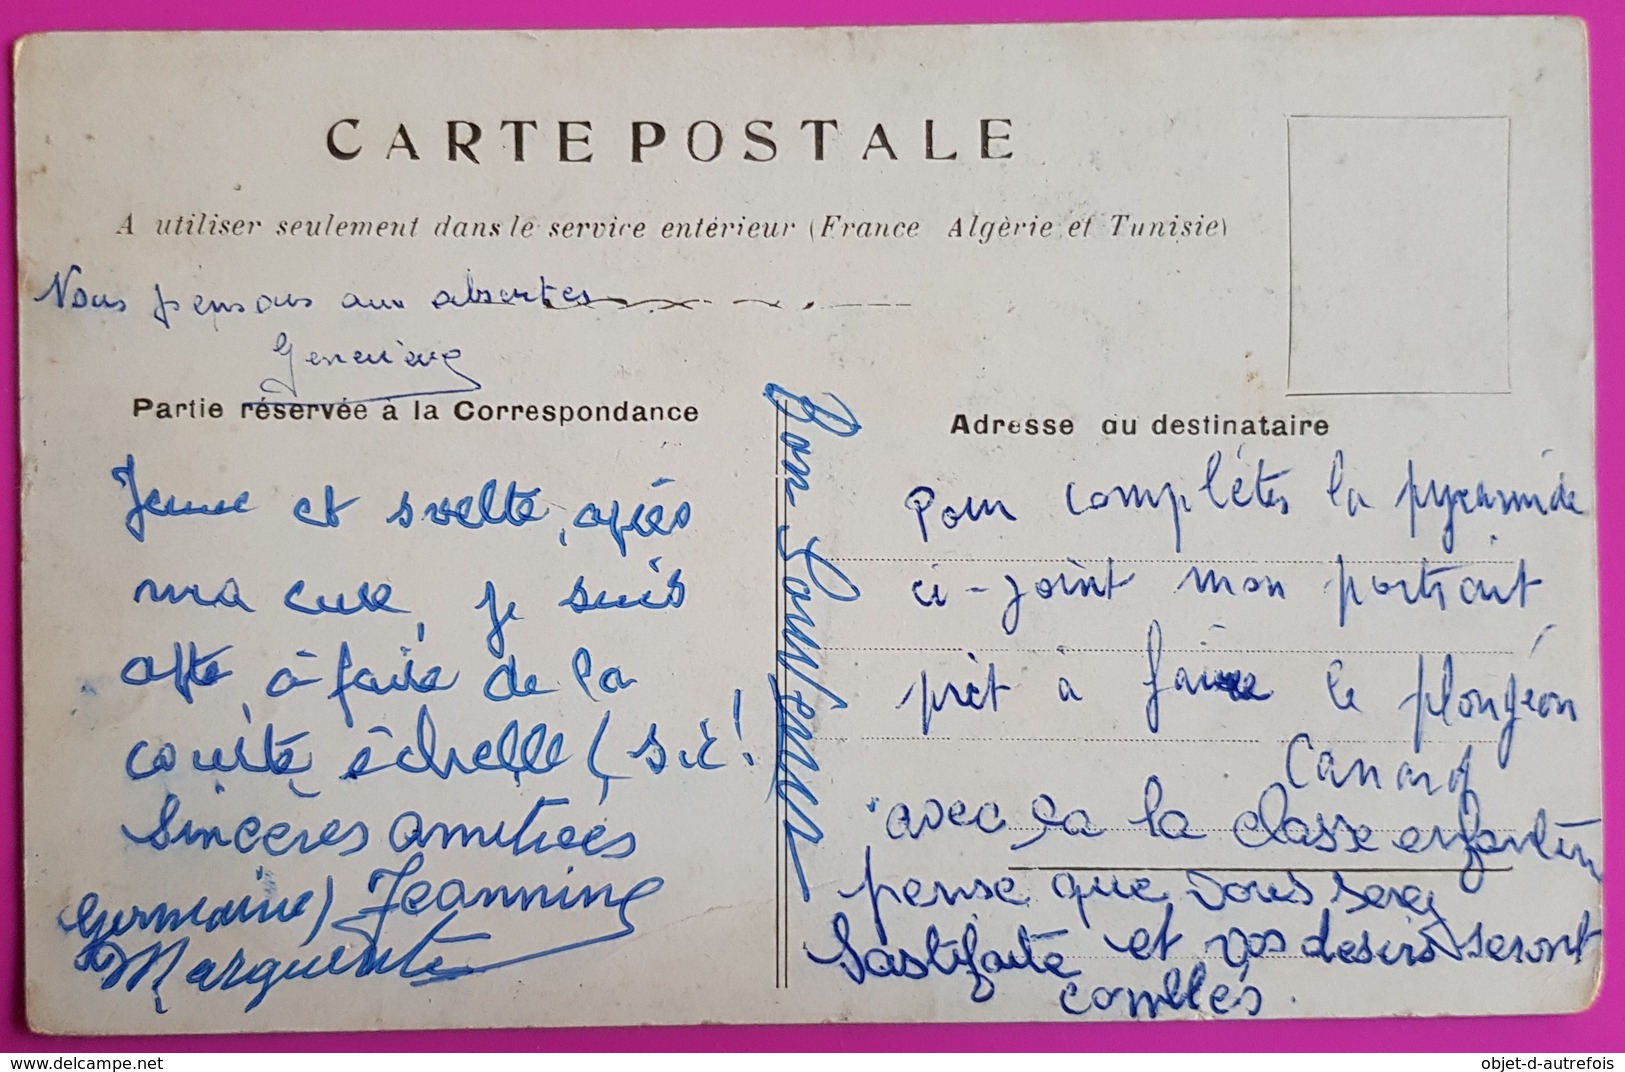 CARTE POSTALE
A utiliser seulement dans le service entérieur (France Algèrie et Tunisie)
Nous pensons aux absentes
Geneviève
Partie réservée à la Correspondance
Jeune et svelte, après
ma cure, je suis
apte à faire de la
courte échelle (sic!
Sincères amitiées
Germaine) Jeannine
Marguerite
Bon Souvenir
Adresse au destinataire
Pour complétés la pyramide
ci-joint mon portrait
prèt à faire le plongéon
Canard
avec ça la classe enfantin
pense que vous serez
Sastifaite et vos desirs seront
comblés.
delcampe.net
objet-d-autrefois